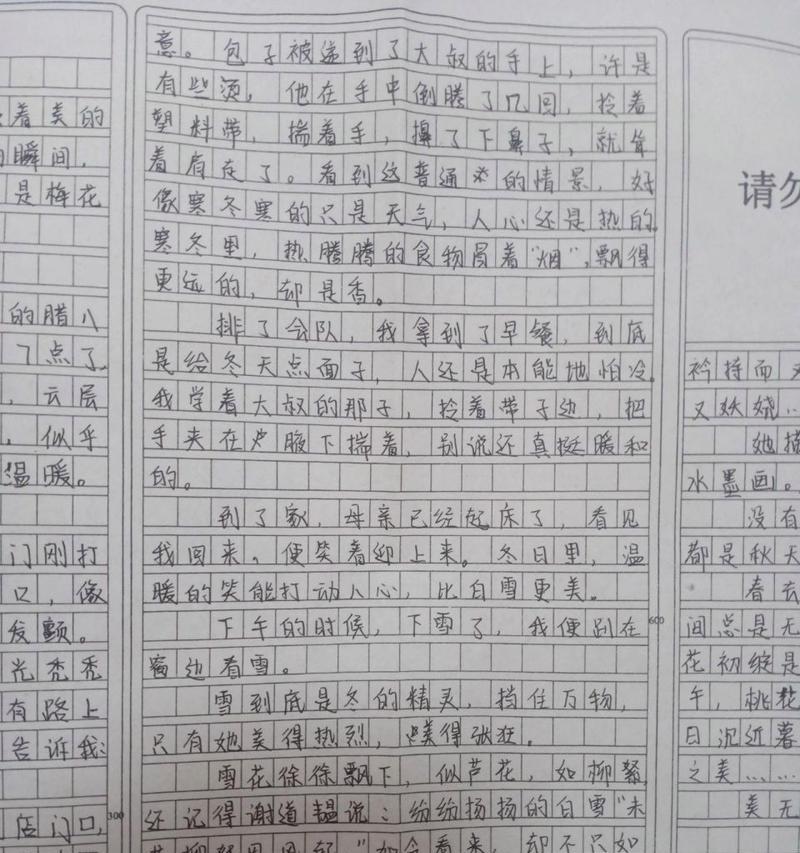 着美的
瞬间，
是梅花
的腊八
7点了
，云层
，似乎
温暖。
门刚打
口，像
发颤。
光秃秃
有路上
告诉我：
店门口，
300
意。包子被递到了大叔的手上，许是
有些烫，他在手中倒腾了几回，拎着
塑料带，揣着手，擤了下鼻子，就耸
着肩走了。看到这普通的情景，好
像寒冬寒的只是天气，人心还是热的。
寒冬里，热腾腾的食物冒着“烟”，飘得
更远的，却是香。
排了会队，我拿到了早餐，到底
是给冬天点面子，人还是本能地怕冷。
我学着大叔的那子，拎着带子边，把
手夹在腋下揣着，别说还真挺暖和
的。
到了家，母亲已经起床了，看见
我回来，便笑着迎上来。冬日里，温
暖的笑能打动人心，比白雪更美。
下午的时候，下雪了，我便趴在
窗边看雪。
600
雪到底是冬的精灵，挡住万物，
只有她美得热烈，美得张狂。
雪花徐徐飘下，似芦花，如柳絮，
还记得谢道韫说：纷纷扬扬的白雪“未
若柳絮因风起”如今看来，却不只如
请勿
矜持而又
又妖娆…
她描
水墨画。
没有
都是秋天
春去
间总是无
花初绽是
午，桃花
日沉近暮
之美……
美无